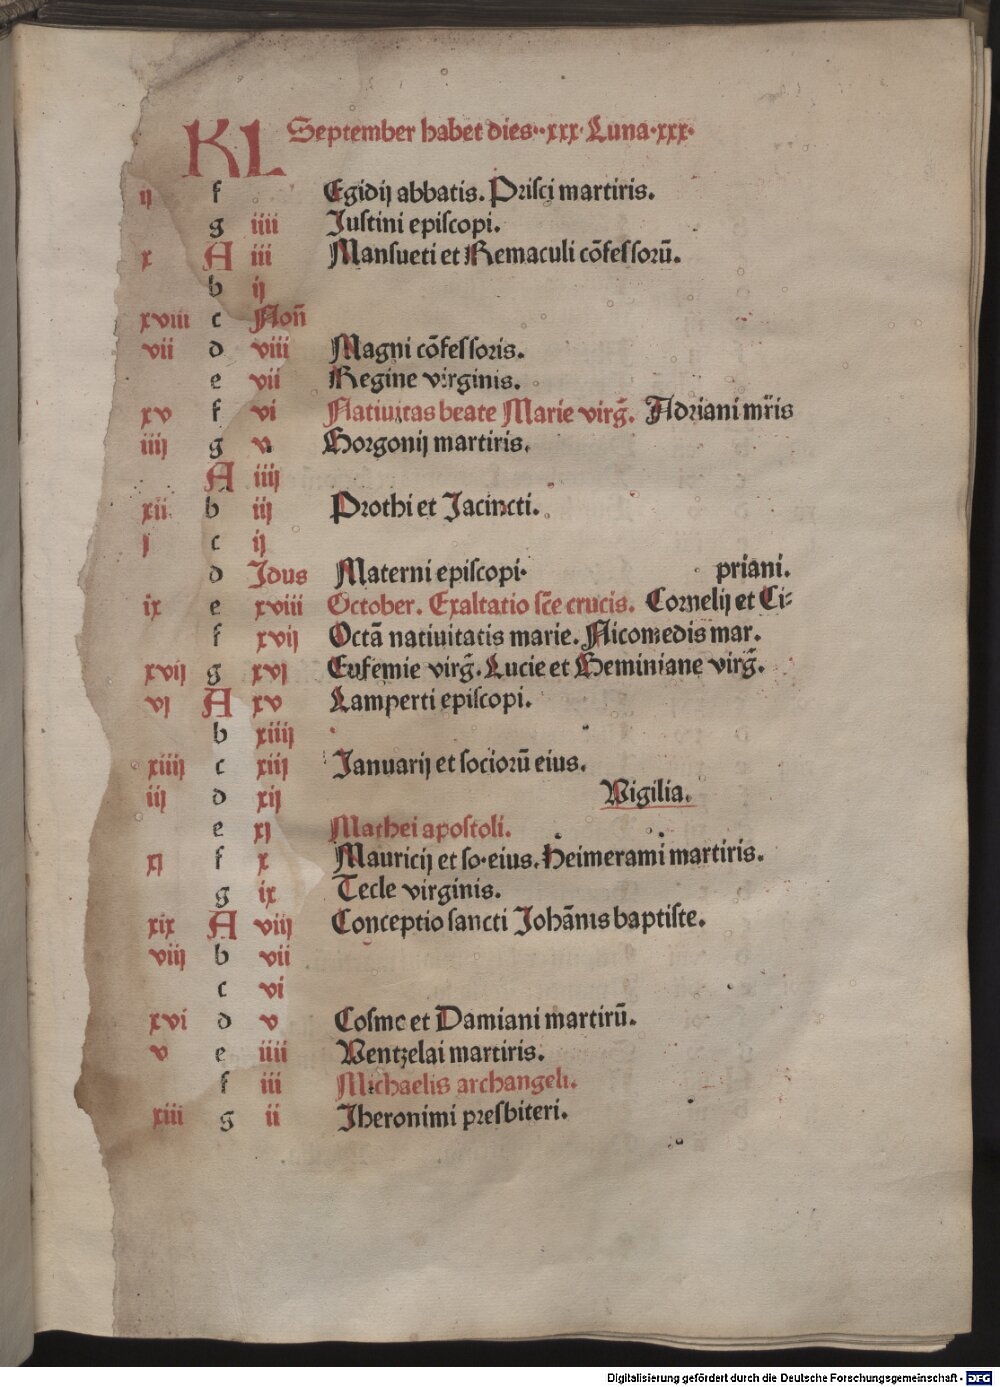 KL September habet dies··xxx·Luna·xxx·
ij f Egidij abbatis. Prisci martiris.
g iiii Iustini episcopi.
x A iii Mansueti et Remaculi cōfessorū.
b ij
xviii c Noñ
vii d viii Magni cōfessoris.
e vii Regine virginis.
xv f vi Natiuitas beate Marie virg̃. Adriani mr̄is
iiij g v Gorgonij martiris.
A iiij
xii b iij Prothi et Jacincti.
j c ij
d Idus Materni episcopi· priani.
ix e xviii October. Exaltatio sc̄e crucis. Cornelij et Ci-
f xvij Octā natiuitatis marie. Nicomedis mar.
xvij g xvj Eufemie virg̃. Lucie et Geminiane virg̃.
vj A xv Lamperti episcopi.
b xiiij
xiiij c xiij Januarij et sociorū eius.
iij d xij Vigilia.
e xj Mathei apostoli.
xj f x Mauricij et so·eius. Heimerami martiris.
g ix Tecle virginis.
xix A viij Conceptio sancti Johānis baptiste.
viij b vii
c vi
xvi d v Cosme et Damiani martirū.
v e iiii Wentzelai martiris.
f iii Michaelis archangeli.
xiii g ii Jheronimi presbiteri.
Digitalisierung gefördert durch die Deutsche Forschungsgemeinschaft - DFG